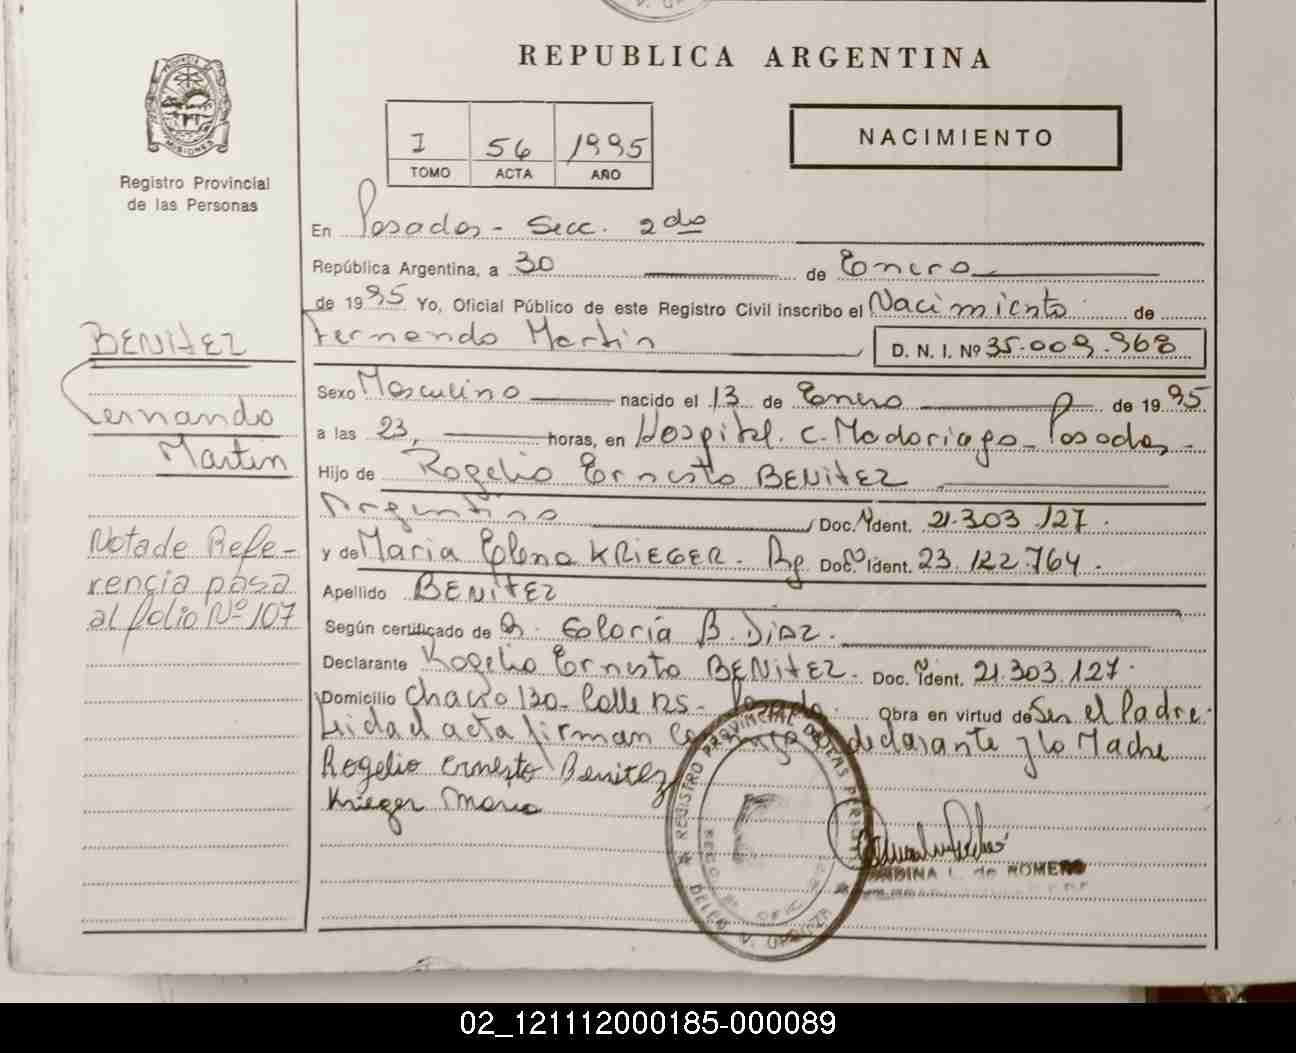 REPUBLICA ARGENTINA
MISIONES
Registro Provincial
de las Personas
I 56 1995
TOMO ACTA AÑO
NACIMIENTO
En Posadas - Secc. 2da
República Argentina, a 30 de Enero
de 1995 Yo, Oficial Público de este Registro Civil inscribo el Nacimiento de
Fernando Martin D. N. I. Nº 35.009.968
BENITEZ
Fernando
Martin
Sexo Masculino nacido el 13 de Enero de 1995
a las 23, horas, en Hospital. C. Madariaga - Posadas -
Hijo de Rogelio Ernesto BENITEZ
Argentino Doc. Ident. 21.303.127.
y de Maria Elena KRIEGER. Arg. Doc. Ident. 23.122.764.
Apellido BENITEZ
Según certificado de Dr. Gloria B. Diaz.
Declarante Rogelio Ernesto BENITEZ. Doc. Ident. 21.303.127.
Domicilio Chacra 130 - Calle 125 - Posadas. Obra en virtud de Ser el Padre.
Leida el acta firman conmigo el declarante y la Madre
Rogelio Ernesto Benitez
Krieger Maria
Nota de Refe-
rencia pasa
al folio Nº 107
REGISTRO PROVINCIAL DE LAS PERSONAS
L. de ROMERO
02_121112000185-000089